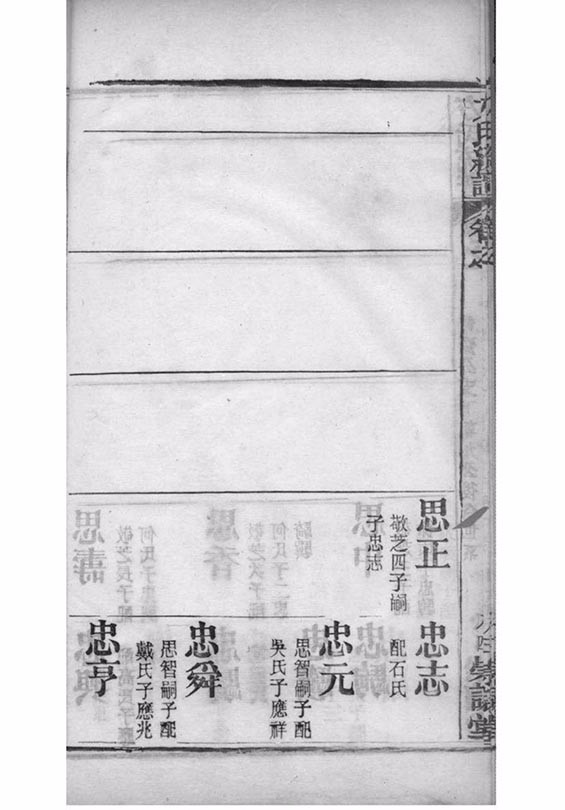 氏總譜 卷之
思正
敬芝四子嗣
子忠志
忠志
配石氏
忠元
思智嗣子配
吳氏子應祥
忠舜
思智嗣子配
戴氏子應兆
忠亨